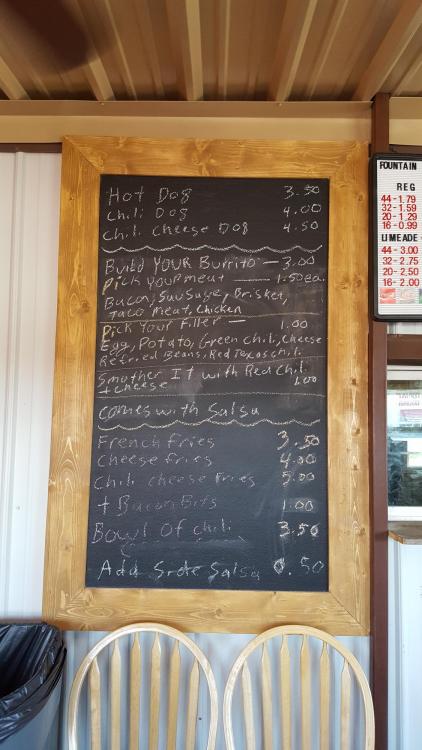 Hot Dog 3.50
Chili Dog 4.00
Chili Cheese Dog 4.50
Build YOUR Burrito — 3.00
Pick Your meat — 1.50 ea.
Bacon, Sausage, Brisket,
Taco Meat, Chicken
Pick Your Filler — 1.00
Egg, Potato, Green Chili, Cheese
Refried Beans, Red Texas chili
Smother It with Red Chili
+ cheese 1.00
comes with Salsa
French Fries 3.50
Cheese Fries 4.00
Chili cheese Fries 5.00
+ Bacon Bits 1.00
Bowl Of chili 3.50
Add Side Salsa 0.50
FOUNTAIN
REG
44 - 1.79
32 - 1.59
20 - 1.29
16 - 0.99
LIMEADE
44 - 3.00
32 - 2.75
20 - 2.50
16 - 2.00